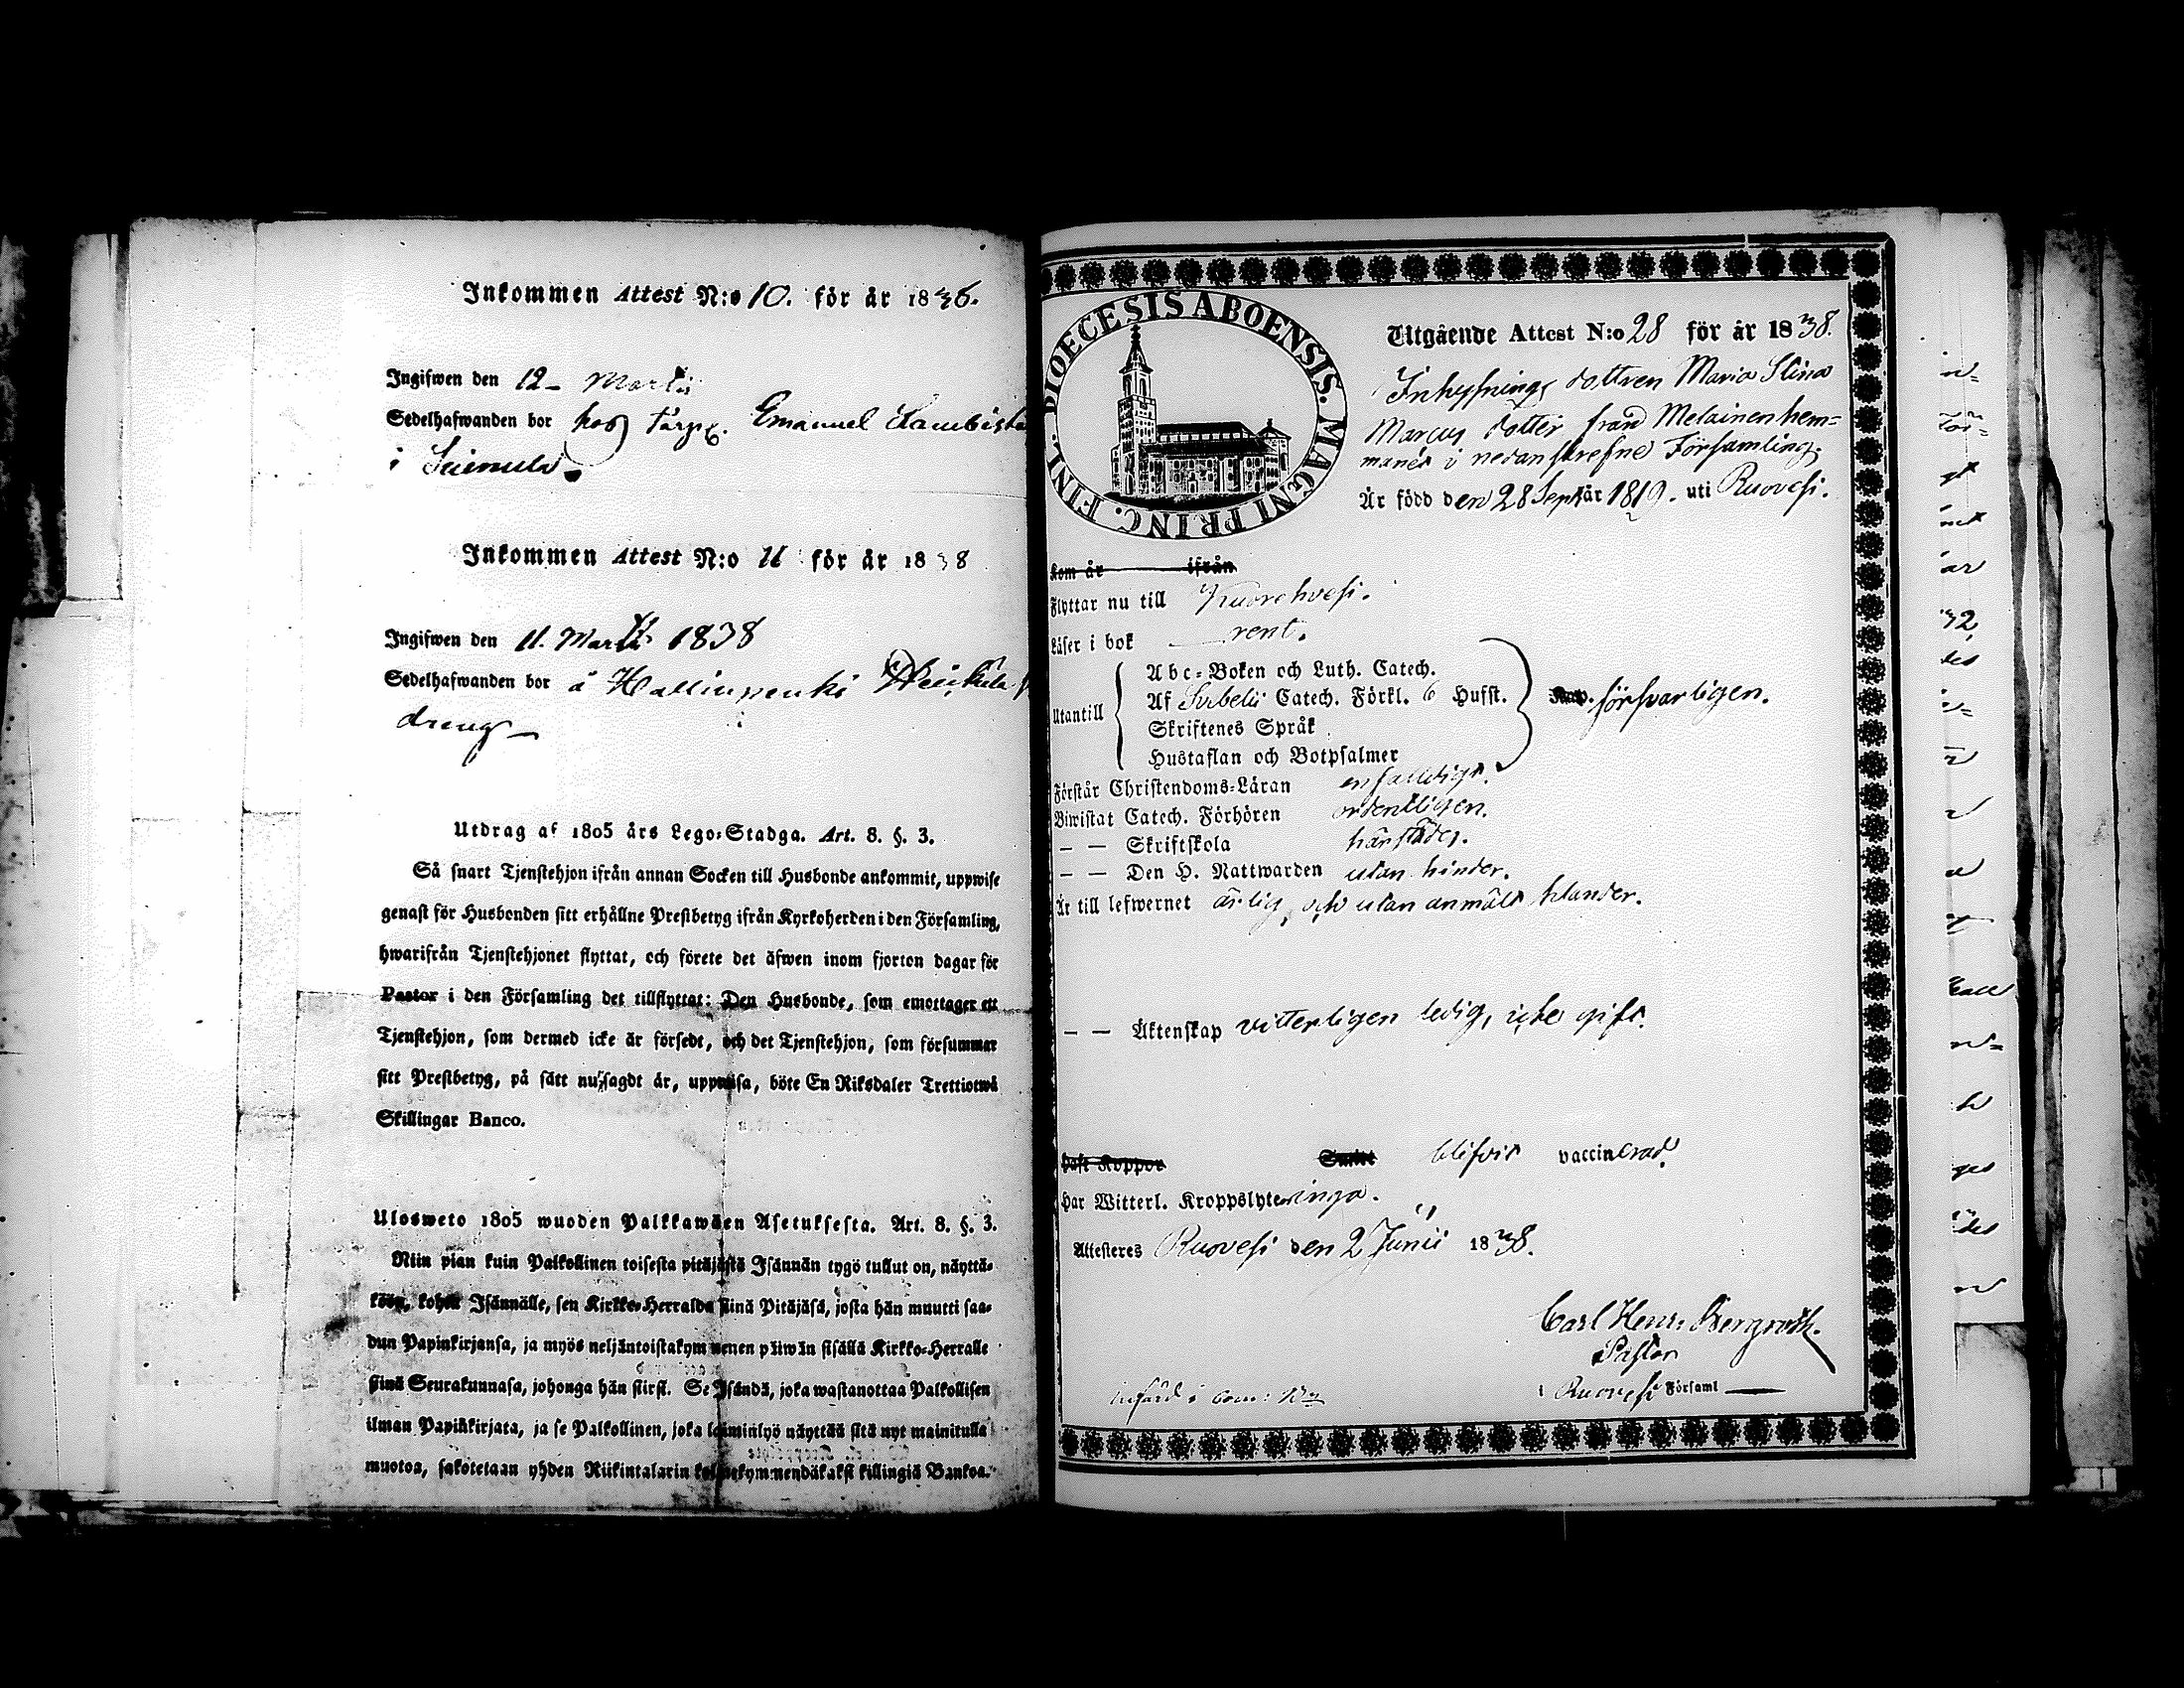 Inkommen Attest N:o 10. för år 1836.
Ingifwen den 12 – Martii
Sedelhafwanden bor hos Torp. Emanuel
i
Inkommen Attest N:o 11 för år 1838
Ingifwen den 11. Martii 1838
Sedelhafwanden bor å
dreng –
Utdrag af 1805 års Lego-Stadga. Art. 8. §. 3.
Så snart Tjenstehjon ifrån annan Socken till Husbonde ankommit, uppwise
genast för Husbonden sitt erhållne Prestbetyg ifrån Kyrkoherden i den Församling,
hwarifrån Tjenstehjonet flyttat, och förete det äfwen inom fjorton dagar för
Pastor i den Församling det tillflyttat: Den Husbonde, som emottager ett
Tjenstehjon, som dermed icke är försedt, och det Tjenstehjon, som försummar
sitt Prestbetyg, på sätt nu sagdt är, uppwisa, böte En Riksdaler Trettiotwå
Skillingar Banco.
Ulosweto 1805 wuoden Palkkawäen Asetuksesta. Art. 8. §. 3.
Niin pian kuin Palkollinen toisesta pitäjästä Isännän tygö tullut on, näyttä-
köön, kohta Isännälle, sen Kirkko-Herralda siinä Pitäjäsä, josta hän muutti saa-
dun Papinkirjansa, ja myös neljäntoistakymmenen päiwän sisällä Kirkko-Herralle
siinä Seurakunnasa, johonga hän siirsi. Se Isändä, joka wastanottaa Palkollisen
ilman Papinkirjata, ja se Palkollinen, joka laiminlyö näyttää sitä nyt mainitulla
muotoa, sakotetaan yhden Riikintalarin kolmekymmendäkaksi killingiä Bankoa.
DIOECESIS ABOENSIS. MAGNI PRINC. FINL.
Utgående Attest N:o 28 för år 1838.
Inhysnings dottren Maria Stina
Marcus dotter från Melainen hem=
manet i nedanskrefne Församling.
År född den 28 Sept år 1819. uti Ruovesi.
Kom år ifrån
Flyttar nu till Kuorehvesi.
Läser i bok rent.
Utantill
Abc-Boken och Luth. Catech.
Af Svebelii Catech. Förkl. 6 Hufst.
Skriftenes Språk
Hustaflan och Botpsalmer
försvarligen.
Förstår Christendoms-Läran enfaldigt.
Biwistat Catech. Förhören ordentligen.
— — Skriftskola härstädes.
— — Den H. Nattwarden utan hinder.
Är till lefwernet ärlig, och utan anmält klander.
— — Äktenskap vitterligen ledig, icke gift.
Haft Koppor blifvit vaccinerad.
Har Witterl. Kroppslyten inga.
Attesteres Ruovesi den 2 Junii 1838.
Carl Henr: Bergroth.
Pastor
i Ruovesi Församl